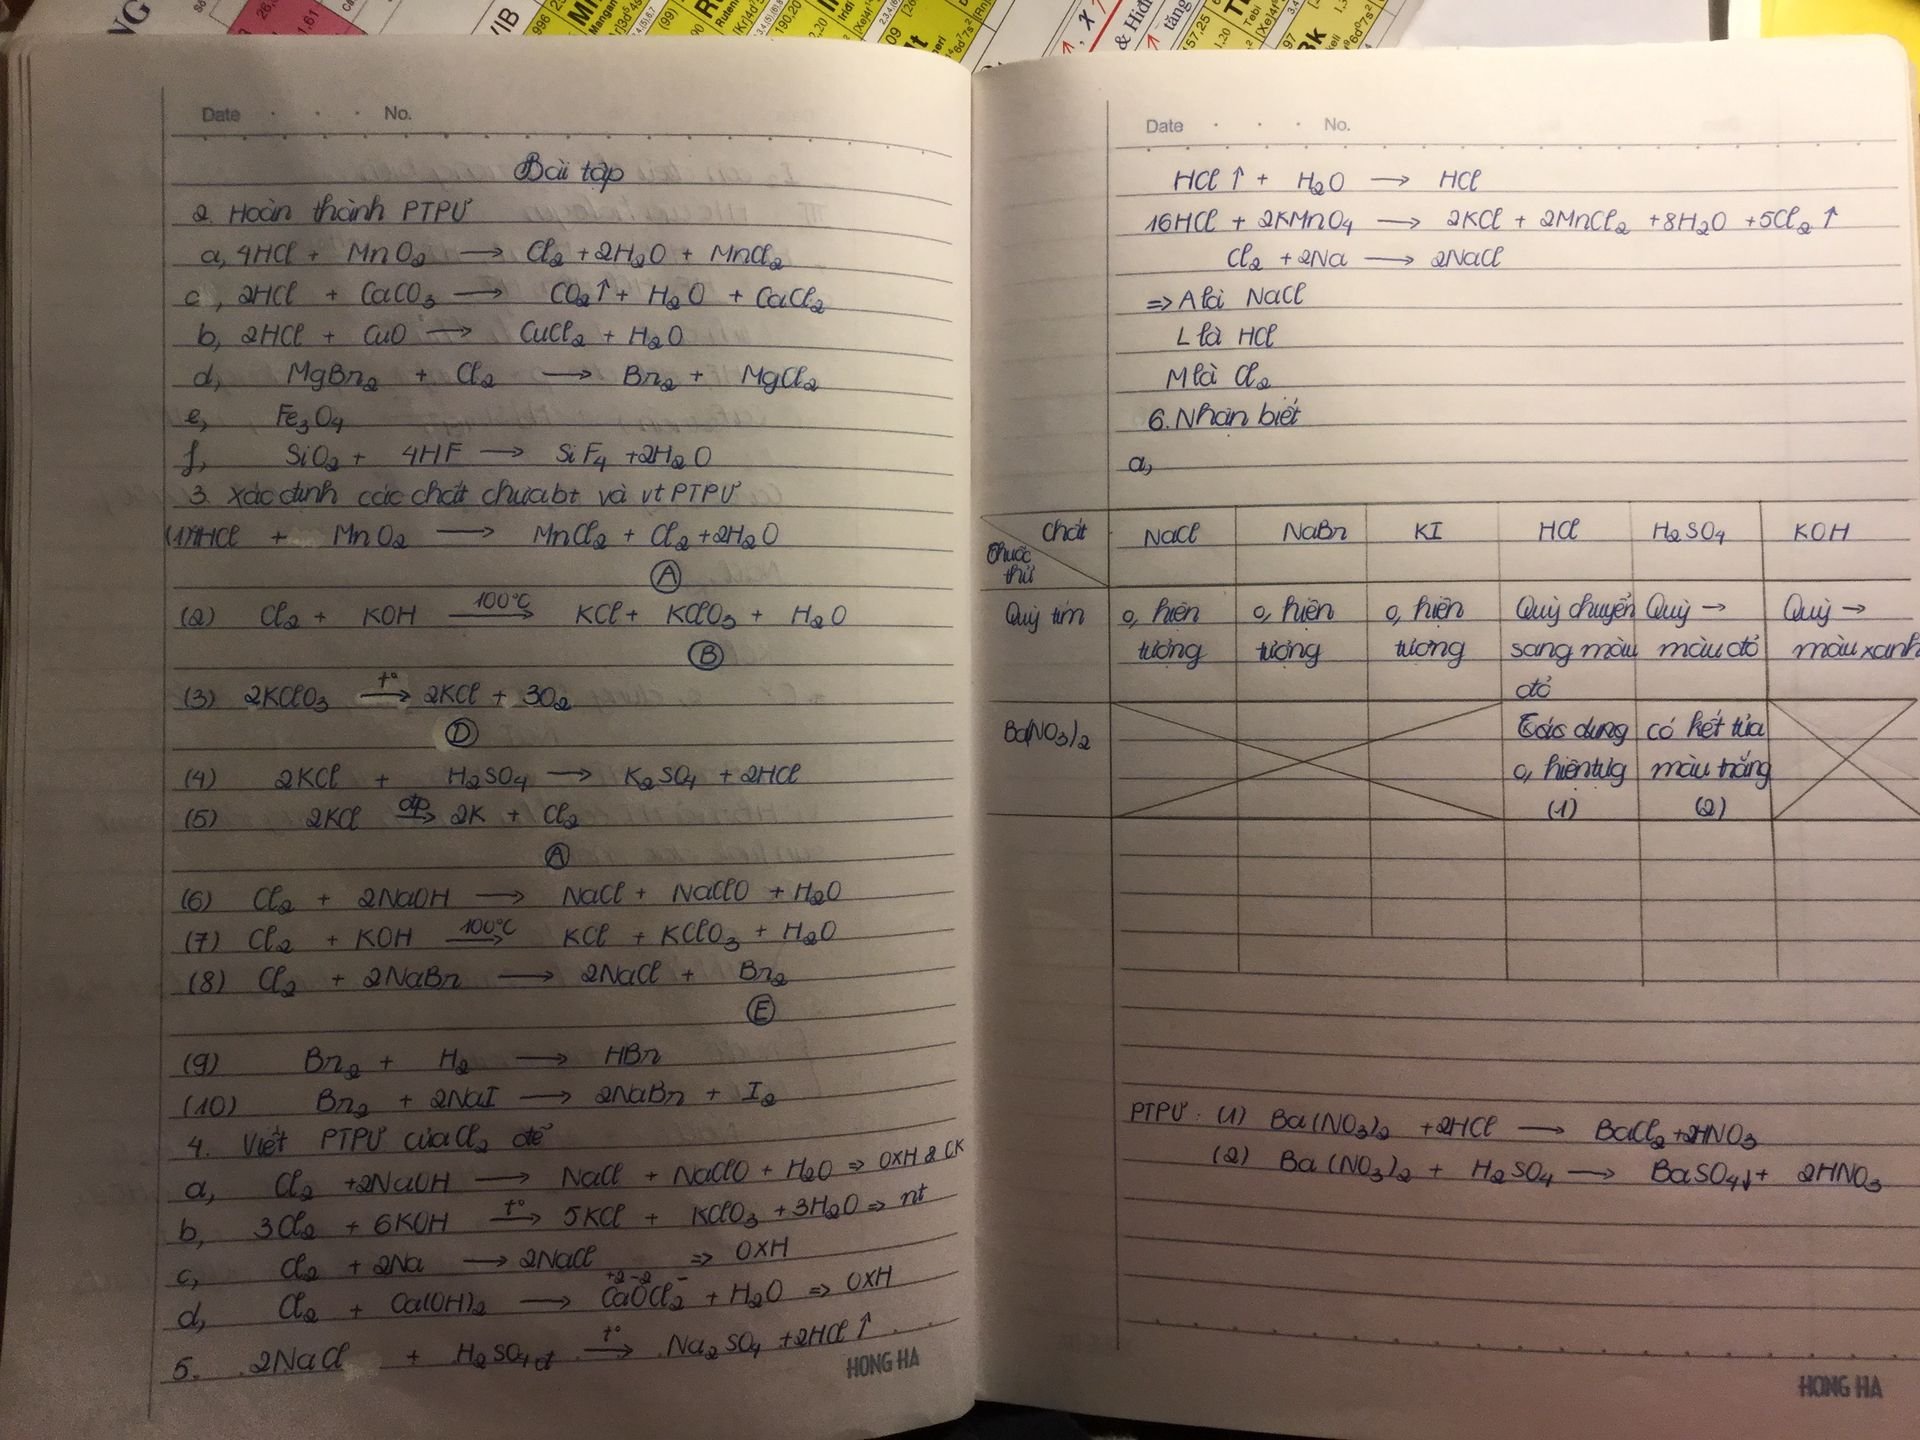 Date No.
Bài tập
2. Hoàn thành PTPƯ
a, 4HCl + MnO2 → Cl2 + 2H2O + MnCl2
c, 2HCl + CaCO3 → CO2↑ + H2O + CaCl2
b, 2HCl + CuO → CuCl2 + H2O
d, MgBr2 + Cl2 → Br2 + MgCl2
e, Fe3O4
f, SiO2 + 4HF → SiF4 + 2H2O
3. Xác định các chất chưa bt và vt PTPƯ
(1) 4HCl + MnO2 → MnCl2 + Cl2 + 2H2O
A
(2) Cl2 + KOH 100°C → KCl + KClO3 + H2O
B
(3) 2KClO3 t° → 2KCl + 3O2
D
(4) 2KCl + H2SO4 → K2SO4 + 2HCl
(5) 2KCl đp → 2K + Cl2
A
(6) Cl2 + 2NaOH → NaCl + NaClO + H2O
(7) Cl2 + KOH 100°C → KCl + KClO3 + H2O
(8) Cl2 + 2NaBr → 2NaCl + Br2
E
(9) Br2 + H2 → HBr
(10) Br2 + 2NaI → 2NaBr + I2
4. Viết PTPƯ của Cl2 để
a, Cl2 + 2NaOH → NaCl + NaClO + H2O ⇒ OXH & CK
b, 3Cl2 + 6KOH t° → 5KCl + KClO3 + 3H2O ⇒ nt
c, Cl2 + 2Na → 2NaCl ⇒ OXH
+2 -2 -
d, Cl2 + Ca(OH)2 → CaOCl2 + H2O ⇒ OXH
5. 2NaCl + H2SO4 đ t° → Na2SO4 + 2HCl↑
HONG HA
Date No.
HCl↑ + H2O → HCl
16HCl + 2KMnO4 → 2KCl + 2MnCl2 + 8H2O + 5Cl2↑
Cl2 + 2Na → 2NaCl
⇒ A là NaCl
L là HCl
M là Cl2
6. Nhận biết
a,
Chất NaCl NaBr KI HCl H2SO4 KOH
Thuốc
thử
Quỳ tím o, hiện o, hiện o, hiện Quỳ chuyển Quỳ → Quỳ →
tượng tượng tượng sang màu màu đỏ màu xanh
đỏ
Ba(NO3)2 Tác dụng có kết tủa
o, hiện tưg màu trắng
(1) (2)
PTPƯ: (1) Ba(NO3)2 + 2HCl → BaCl2 + 2HNO3
(2) Ba(NO3)2 + H2SO4 → BaSO4↓ + 2HNO3
HONG HA